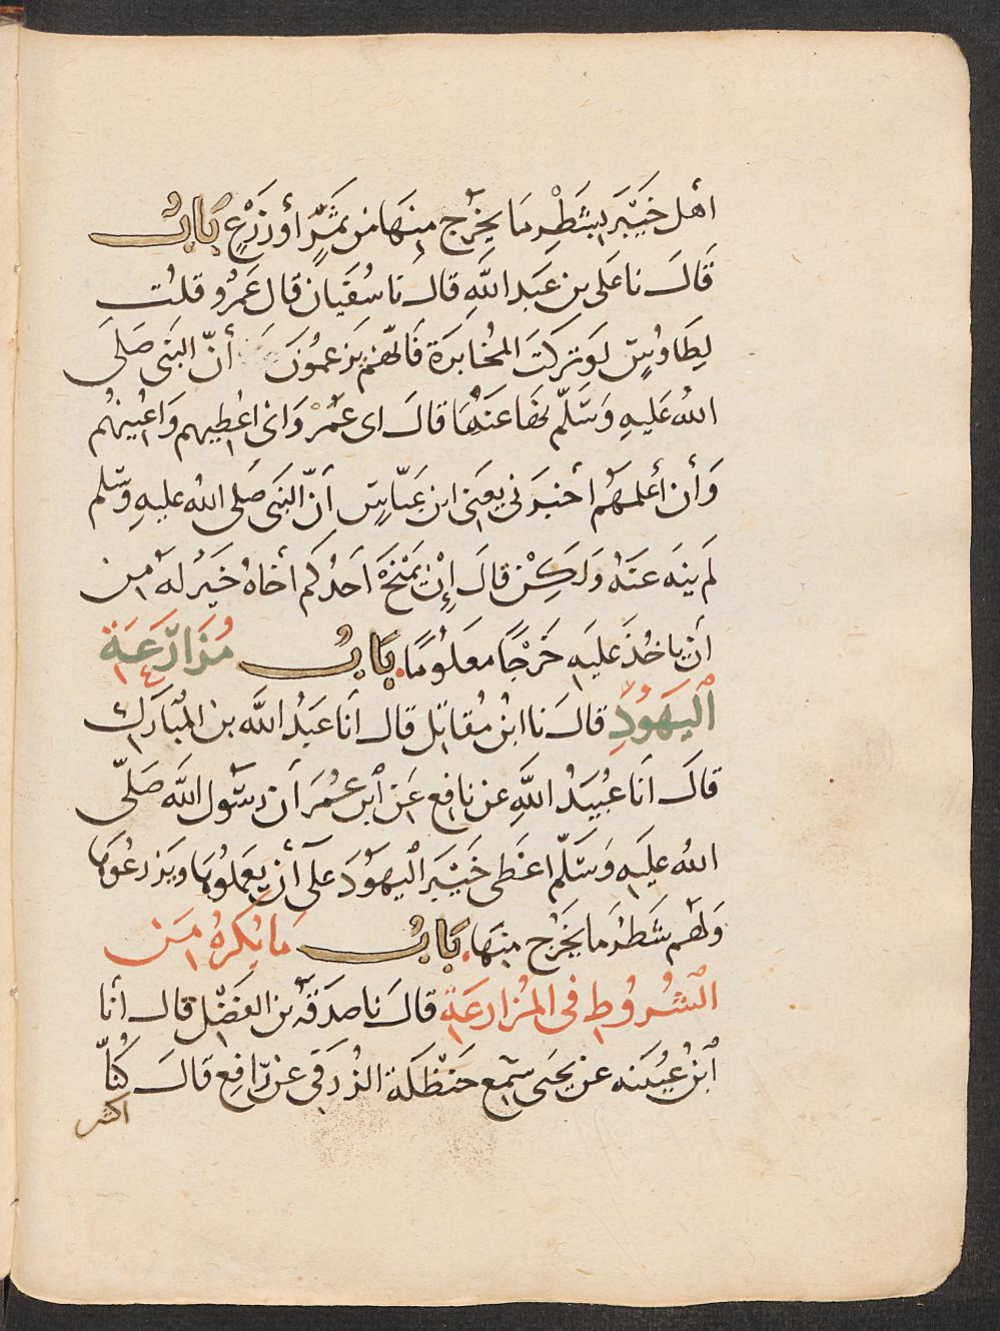 اهل خَيْبَرَ بِشَطْرِ مَا يخْرُج مِنهَا من ثَمَرٍ أو زَرْعٍ بَابُ
قَالَ نا عَلى بن عَبد اللَّهِ قال نا سُفيَان قال عَمرُو قلتُ
لِطَاوُسٍ لو تركتَ المُخَابرَة فَانّهم يزعمُونَ أنّ النبَّى صَلَى
اللهُ عَليهِ وَسَلّم نهَى عَنهَا قالَ اى عَمْرُ وَانى اعْطِيهم وَاعُينهُم
وَأن أعْلمهُم أخبرَنى يعنى ابن عَبّاسٍ أنّ النبَّى صَلى اللهُ عليهِ وسَلم
لم ينهَ عَنهُ وَلَكِنْ قالَ إنْ يَمْنَحْ احَدُكم أخاهُ خَيرُ له من
أن ياخُذَ عَليهِ خَرْجًا مَعلُومًا. بَابُ مُزَارَعَةِ
ٱليَهُودِ قالَ نا ابنُ مُقاتل قال أنا عَبدُ اللَّه بن المبَارَك
قالَ انَا عُبيدُ اللَّهِ عن نافِع عَن ٱبن عُمَرَ أن رسُول اللَّه صَلّى
اللهُ عليَهِ وَسَلّم اعْطَى خَيْبَرَ اليهُودَ علَى أن يعملُوهَا ويزرعُوهَا
وَلهُم شَطرُ مَا يخْرُج منهَا. بَابُ مَا يُكرهُ من
الشُرُوطِ فى المُزارعَةِ قالَ نا صَدَقَة بن الفَضْل قال أنا
ٱبنُ عُيينه عن يحيَى سَمِع حَنظَلَة الزُرَقى عن رَافع قالَ كُنّا
اكثر